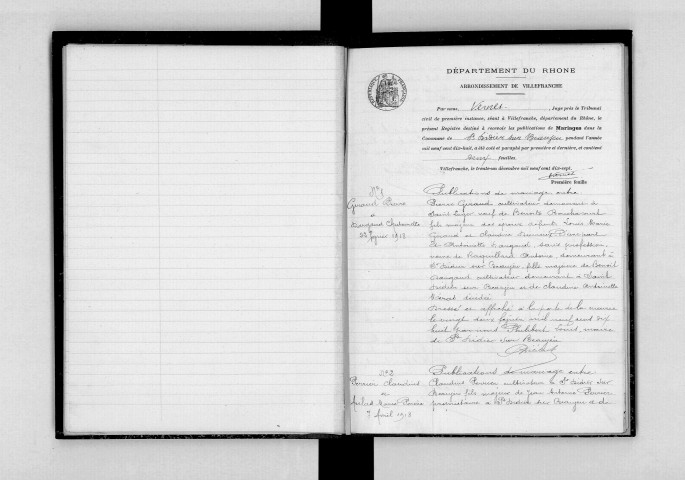 DÉPARTEMENT DU RHONE
ARRONDISSEMENT DE VILLEFRANCHE
Par nous, Juge près le Tribunal
civil de première instance, séant à Villefranche, département du Rhône, le
présent Registre destiné à recevoir les publications de Mariages dans la
Commune de St Didier sur Beaujeu pendant l'année
mil neuf cent dix-huit, a été coté et paraphé par première et dernière, et contient
deux feuilles.
Villefranche, le trente-un décembre mil neuf cent dix-sept.
Première feuille
N° 1
Giraud Pierre
à
Antoinette
22 février 1918
Publications de mariage entre
Pierre Giraud cultivateur demeurant à
Saint Lager veuf de Benoite
fils majeur des époux défunt Louis Marie
Giraud et Claudine
Et Antoinette sans profession
veuve de Antoine, demeurant à
St Didier sur Beaujeu, fille majeure de Benoit
cultivateur demeurant à Saint
Didier sur Beaujeu et de Claudine Antoinette
décédée
et affiché à la porte de la mairie
le vingt deux février mil neuf cent dix
huit par nous Philibert Louis, maire
de St Didier sur Beaujeu
N° 2
Perrier Claudius
à
Marie
7 avril 1918
Publications de mariage entre
Claudius Perrier cultivateur à St Didier sur
Beaujeu fils majeur de Jean Antoine Perrier
propriétaire à St Didier sur Beaujeu et de